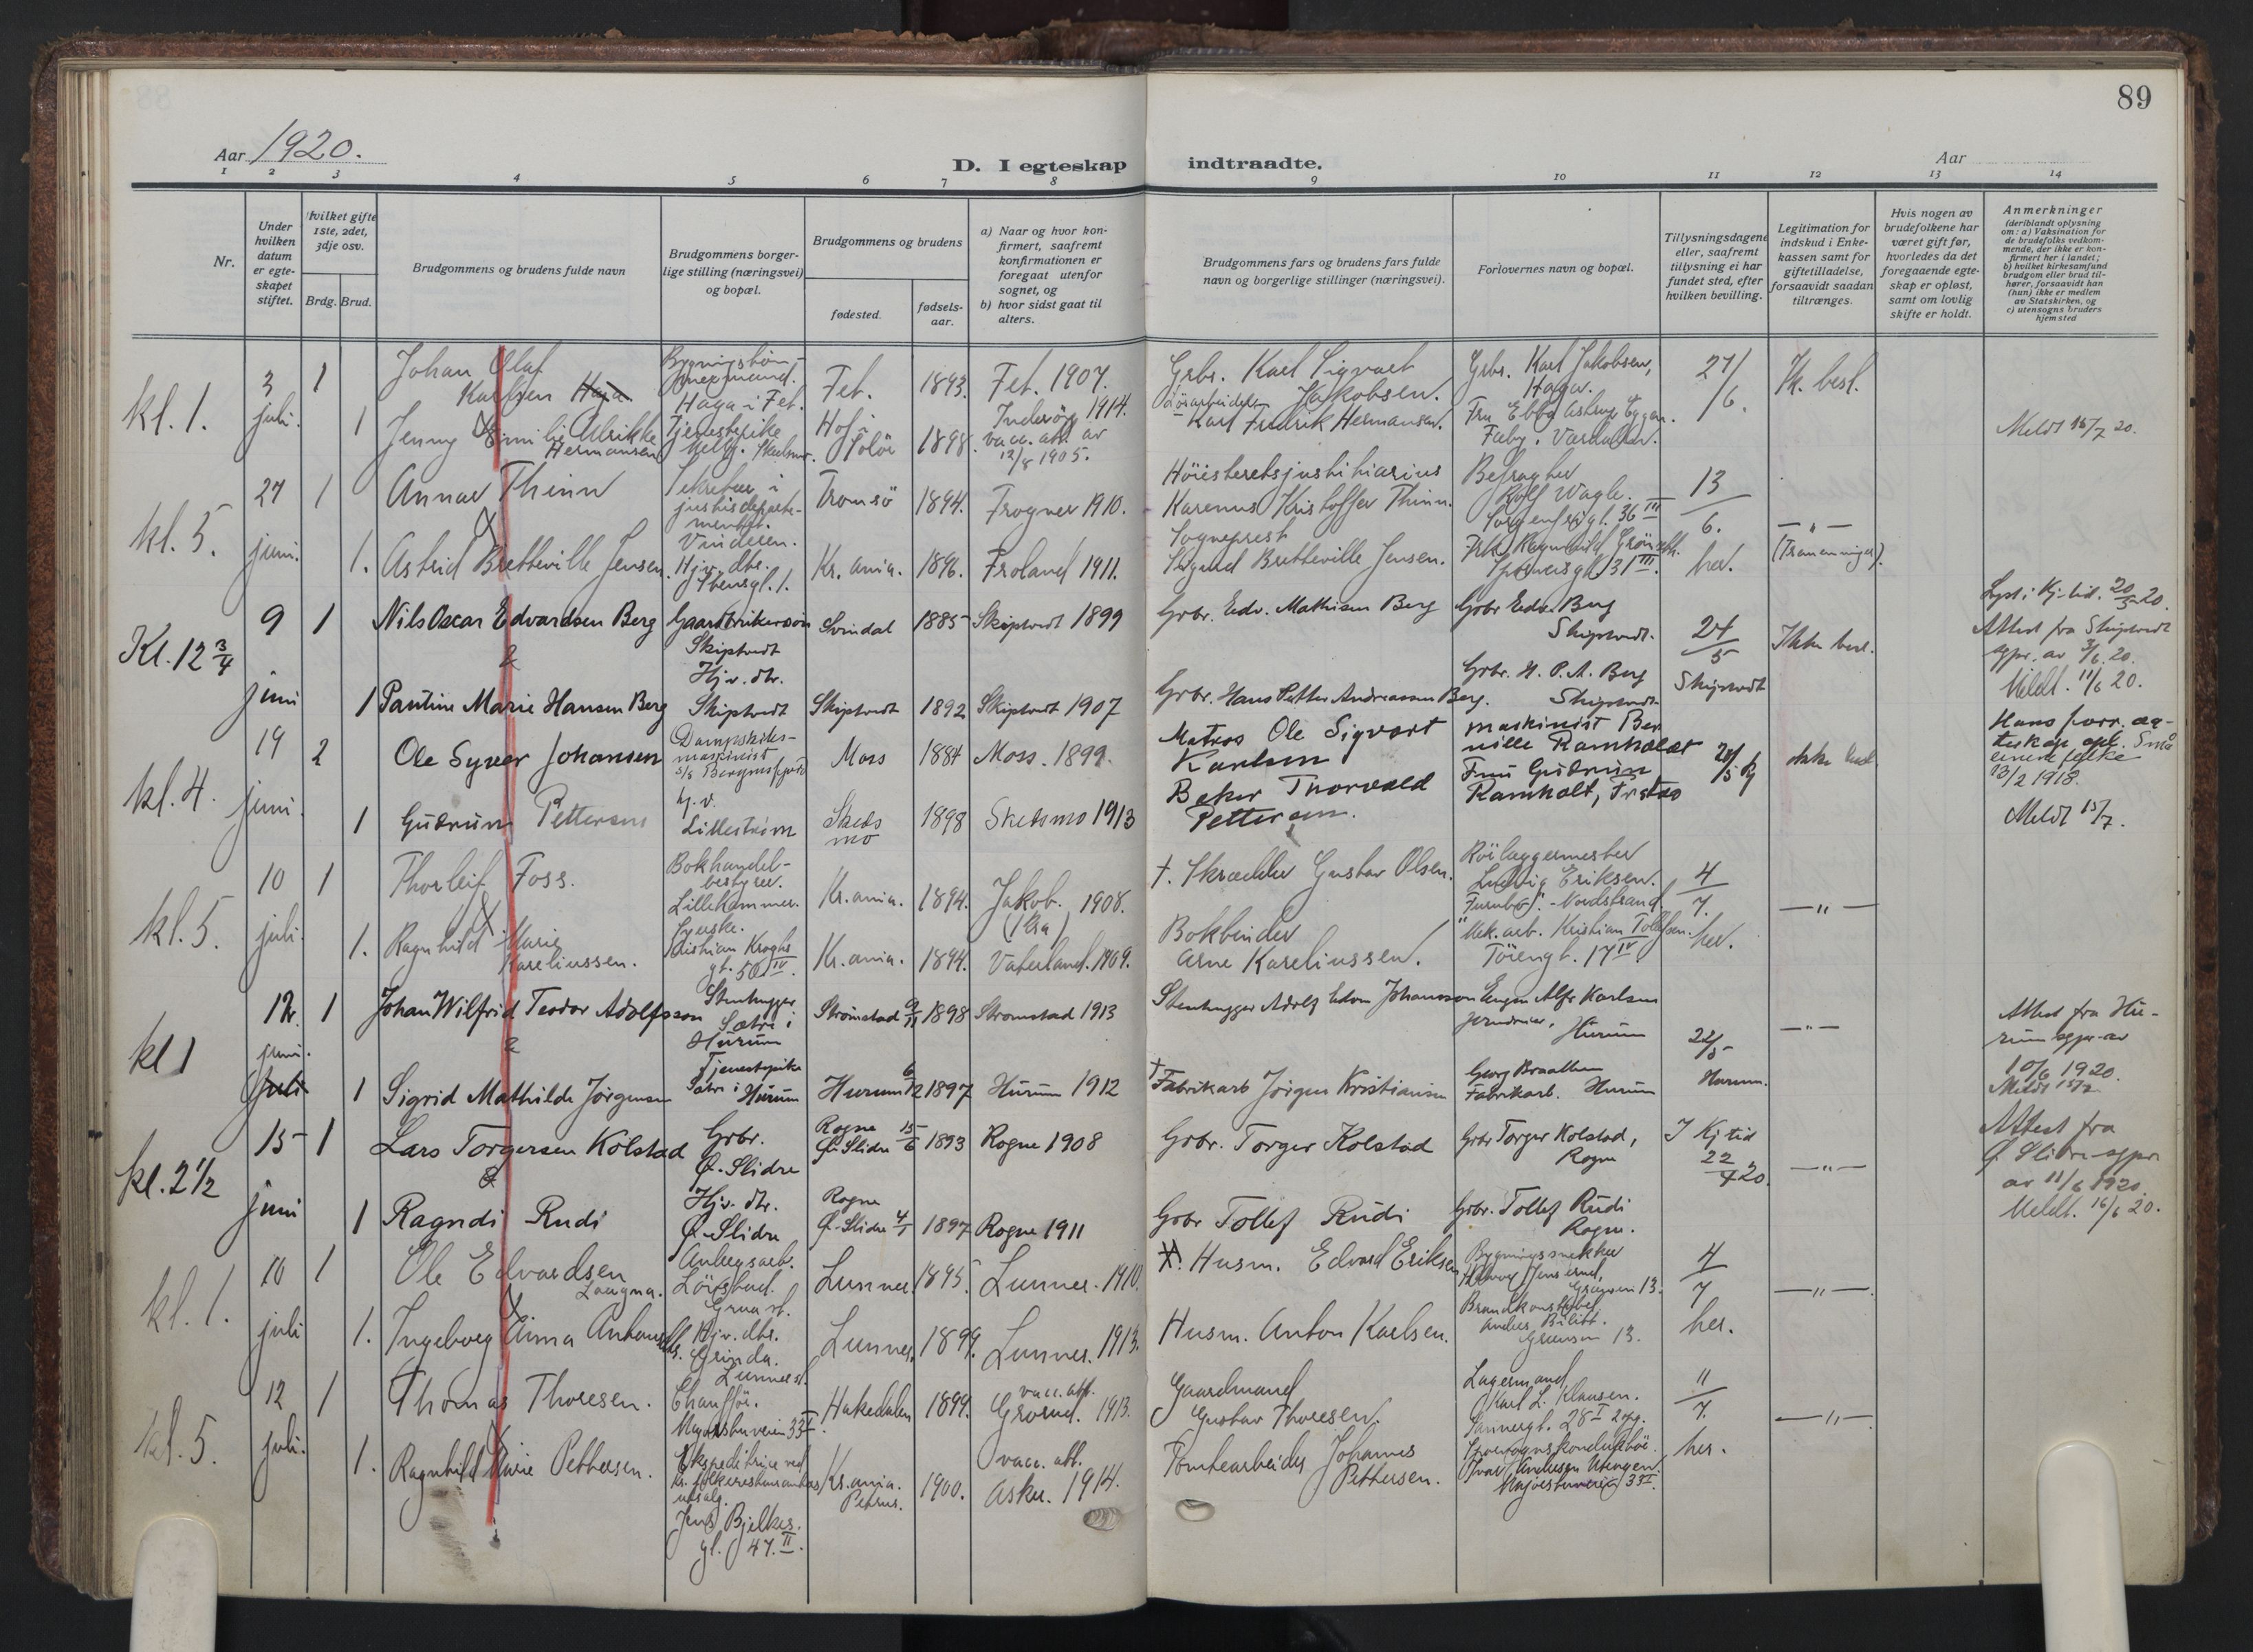 89
Aar 1920.
D. I egteskap indtraadte.
Aar
1 2 3 4 5 6 7 8 9 10 11 12 13 14
Nr.
Under
hvilken
datum
er egte-
skapet
stiftet.
Hvilket gifte
1ste, 2det,
3dje osv.
Brdg. Brud.
Brudgommens og brudens fulde navn
Brudgommens borger-
lige stilling (næringsvei)
og bopæl.
Brudgommens og brudens
fødested.
fødsels-
aar.
a) Naar og hvor kon-
firmert, saafremt
konfirmationen er
foregaat utenfor
sognet, og
b) hvor sidst gaat til
alters.
Brudgommens fars og brudens fars fulde
navn og borgerlige stillinger (næringsvei).
Forlovernes navn og bopæl.
Tillysningsdagene
eller, saafremt
tillysning ei har
fundet sted, efter
hvilken bevilling.
Legitimation for
indskud i Enke-
kassen samt for
giftetilladelse,
forsaavidt saadan
tiltrænges.
Hvis nogen av
brudefolkene har
været gift før,
hvorledes da det
foregaaende egte-
skap er opløst,
samt om lovlig
skifte er holdt.
Anmerkninger
(deriblandt oplysning
om: a) Vaksination for
de brudefolks vedkom-
mende, der ikke er kon-
firmert her i landet;
b) hvilket kirkesamfund
brudgom eller brud til-
hører, forsaavidt han
(hun) ikke er medlem
av Statskirken, og
c) utensogns bruders
hjemsted
kl. 1.
3 juli. 1
Johan Olaf
Karlsen Haga
Haga i Fet.
Fet. 1893. Fet. 1907.
Grbr. Karl Sigvart
Jakobsen.
Grbr. Karl Jakobsen,
Haga.
27/6.
Ik. besl.
1 Jenny Emilie Ulrikke
Hermansen
Tjenestepike
Hof i
Solör 1898.
Inderöy 1914.
vacc. att. av
12/8 1905.
Karl Fredrik Hermansen.
Fru Ebba Astrup Eggen.
Fæby, Værdalen.
Meldt 15/7 20.
kl. 5.
27 juni. 1
Annar Thinn
&
Sekretær i
justisdeparte-
mentet.
Vinderen.
Tromsö 1894. Frogner 1910.
Höiesteretsjustitiarius
Karenus Kristoffer Thinn.
Befragter
Rolf Wagle.
Sorgenfrigt. 36 III
13/6.
her.
— " —
1. Astrid Bretteville Jensen.
Hjv. dtr.
Stensgt. 1.
Kr. ania. 1896. Froland 1911.
Sogneprest
Sigurd Bretteville Jensen.
31 III.
Kl. 12 3/4
9 juni 1
Nils Oscar Edvardsen Berg
&
Gaardbrukersön
Skiptvedt
Svindal 1885 Skiptvedt 1899
Grbr. Edv. Mathisen Berg
Grbr Edv. Berg
Skiptvedt.
24/5
Skiptvedt
Ikke besl.
Lyst i Kj.-tid. 20/5 20.
Attest fra Skiptvedt
sgpr. av 3/6. 20.
Meldt. 11/6 20.
1 Pauline Marie Hansen Berg
Hjv. dtr.
Skiptvedt
Skiptvedt 1892 Skiptvedt 1907
Grbr. Hans Petter Andreassen Berg.
Grbr. H. P. A. Berg
Skiptvedt.
kl. 4.
19 juni. 2
Ole Syver Johansen
Dampskibs-
maskinist
s/s Bergensfjord
Moss 1884 Moss. 1899.
Matros Ole Sigvart
Karlsen
maskinist Ber
nille Ramholdt
ikke besl
Hans forr. æg-
teskap opl.
13/2 1918.
Meldt 15/7.
1 Gudrun Pettersen
hj. d.
Lilleström
Skeds
mo
1898 Skedsmo 1913
Beker Thorvald
Pettersen.
Fru Gudrun
Ramholt,
kl. 5.
10 juli. 1
Thorleif Foss.
&
Bokhandel-
bestyrer.
Lillehammer.
Kr.ania. 1894. Jakob. 1908.
(Kra)
† Skrædder Gustav Olsen.
Rörlæggermester
Ludvig Eriksen.
Nordstrand.
4/7.
her.
— " —
1. Ragnhild Marie
Kareliussen.
Syerske.
Kristian Kroghs
gt. 50 IV.
Kr. ania. 1894. Vaterland. 1909.
Bokbinder
Arne Kareliussen.
Mek. arb. Kristian Tollefsen.
Töiengt. 17 IV.
kl 1
12. juni. juli 1
Johan Wilfrid Teodor Adolfsson
&
Stenhugger
Sætre i
Hurum
Strömstad 9/11 1898 Strömstad 1913
Stenhugger Adolf Edvin Johansson
Eugen Alfr Karlsen
Jerndreier, Hurum
22/5
Hurum.
— " —
Attest fra Hu-
rum sgpr. av
10/6 1920.
Meldt 15/7
1 Sigrid Mathilde Jörgensen
Tjenestepike
Sætre i Hurum
Hurum 6/12 1897 Hurum 1912
† Fabrikarb Jörgen Kristiansen
Georg Braathen
Fabrikarb. Hurum
kl. 2 1/2
15 juni 1
Lars Torgersen Kolstad
&
Grbr.
Ø. Slidre
Rogne
Ø. Slidre 15/6 1893 Rogne 1908
Grbr. Torger Kolstad
Grbr Torger Kolstad,
Rogne
I Kj tid
22/4 20.
— " —
Attest fra
Ø. Slidre sgpr.
av 11/6 1920.
Meldt. 16/6 20.
1 Ragndi Rudi
Hjv. dtr.
Ø. Slidre
Rogne
Ø. Slidre 4/1 1897 Rogne 1911
Grbr Tollef Rudi
Grbr. Tollef Rudi
Rogne.
kl. 1.
10 juli 1
Ole Edvardsen
Laugna.
&
Anlegsarb.
Grua st.
Lunner. 1895. Lunner. 1910.
Husm. Edvard Eriksen
Bygningssnekker
4/7
her.
— " —
1. Ingeborg Anna Antonsdtr.
Hjv. dtr.
Grinda.
Lunner st.
Lunner. 1899. Lunner. 1913.
Husm. Anton Karlsen.
Brandkonstabel
13.
kl. 5.
12 juli. 1
Thomas Thoresen.
&
Chaufför.
Majorstuveien 33 I.
Hakedalen 1899.
vacc. att.
Grorud. 1913.
Gaardmand
Gustav Thoresen.
Lagermand
Karl L. Klausen.
Sannergt. 28 I opg.
11/7.
her.
— " —
1. Ragnhild Marie Pettersen.
Ekspeditrice ved
utsalg.
Jens Bjelkes
gt. 47. II.
Kr. ania.
Petrus. 1900.
vacc. att.
Asker. 1914.
Tomtearbeider Johannes
Pettersen.
Sporvognskonduktör.
Majorstuveien 33 I.